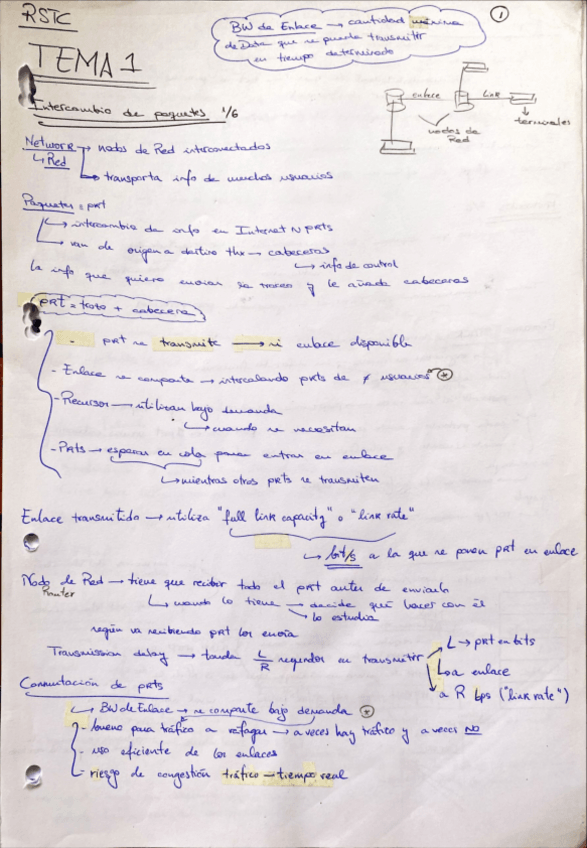 RSTC
①
BW de Enlace → cantidad máxima
de Data que se puede transmitir
en tiempo determinado
TEMA 1
Intercambio de paquetes 1/6
enlace
link
nodos de
Red
terminales
Network → nodos de Red interconectados
↳ Red
↳ transporta info de muchos usuarios
Paquetes = PKT
↳ intercambio de info en Internet N PKTS
↳ van de origen a destino thx → cabeceras
↳ info de control
la info que quiero enviar se trocea y le añado cabeceras
PKT = trozo + cabecera
- PKT se transmite → si enlace disponible
- Enlace se comparte → intercalando PKTS de ≠ usuarios *
- Recursos → utilizan bajo demanda
↳ cuando se necesitan
- PKTS → esperar en cola para entrar en enlace
↳ mientras otros PKTS se transmiten
Enlace transmitido → utiliza "full link capacity" o "link rate"
↳ bit/s a la que se ponen PKT en enlace
Nodo de Red → tiene que recibir todo el PKT antes de enviarlo
Router
↳ cuando lo tiene → decide qué hacer con él
↳ lo estudia
según va recibiendo PKT los envía
Transmission delay → tarda L/R segundos en transmitir
L → PKT en bits
↳ a enlace
a R bps ("link rate")
Conmutación de PKTS
↳ BW de Enlace → se comparte bajo demanda *
- bueno para tráfico a ráfagas → a veces hay tráfico y a veces NO
- uso eficiente de los enlaces
- riesgo de congestión tráfico → tiempo real